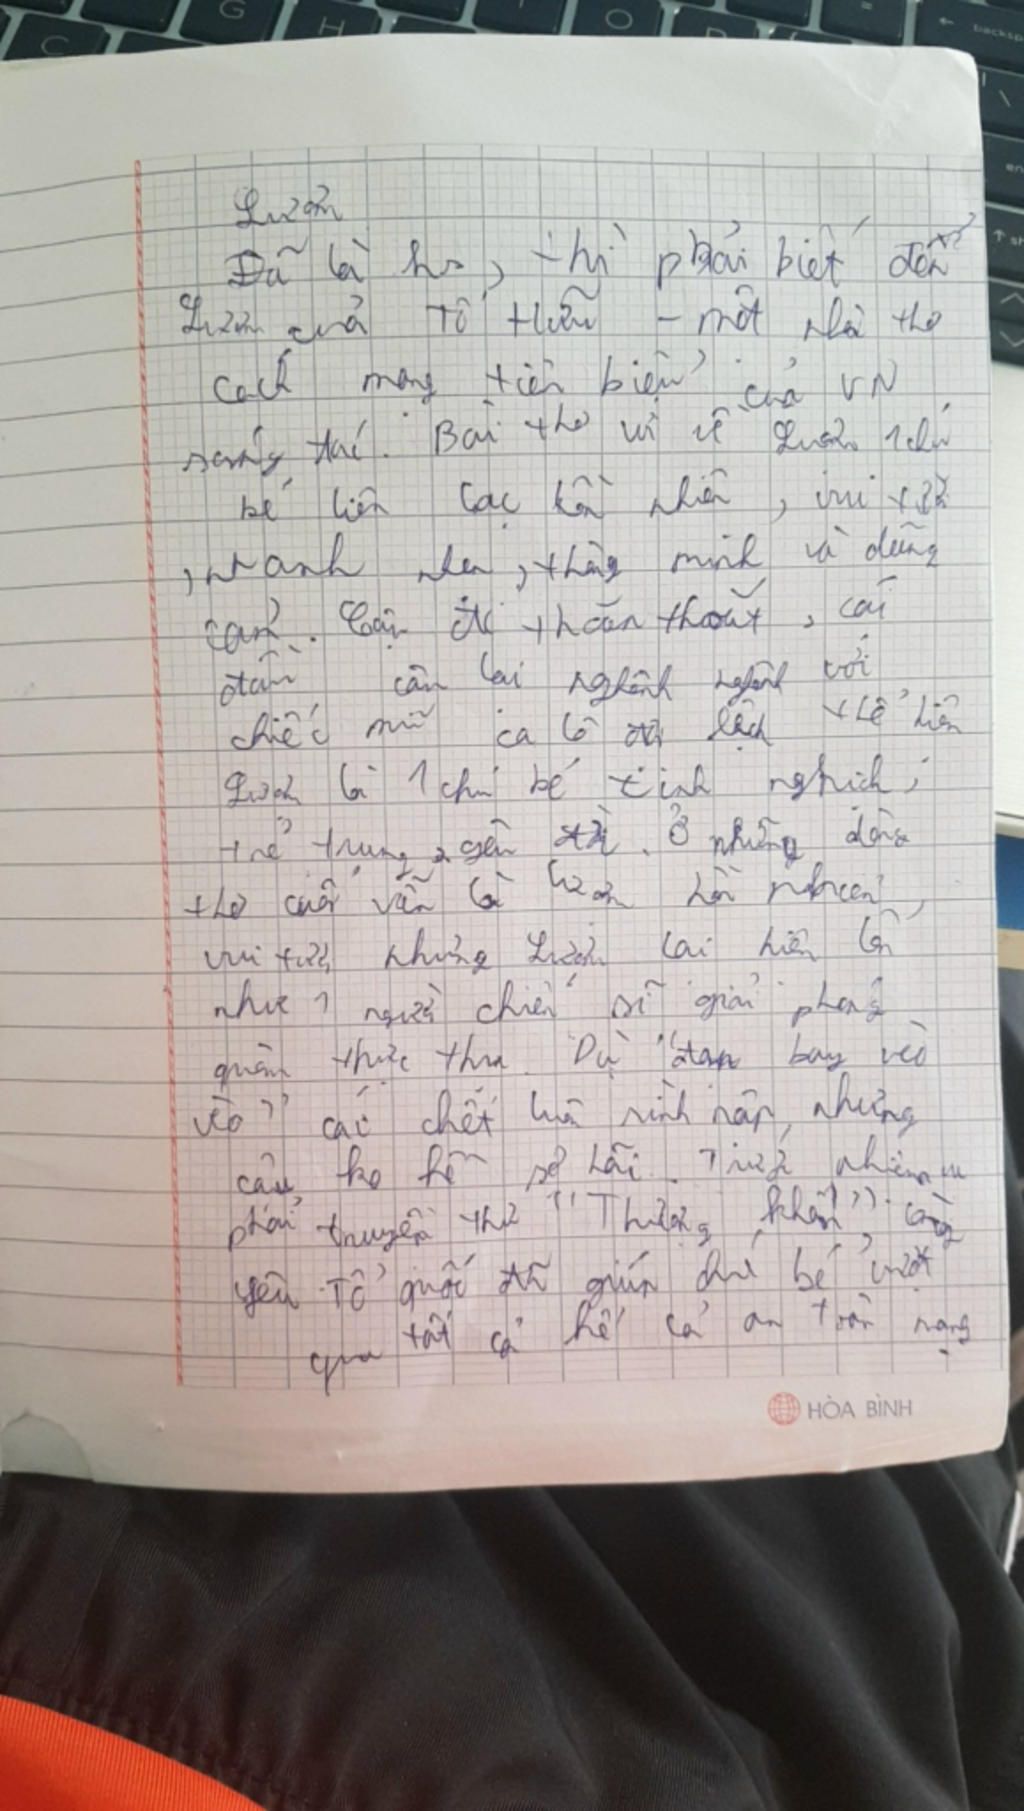 Lượm
Đã là hs, thì phải biết đến
Lượm của Tố Hữu - một nhà thơ
cách mạng tiên biểu của VN
sáng tác. Bài thơ về Lượm 1 chú
bé liên lạc hồn nhiên, vui tươi
, nhanh nhẹn, thông minh và dũng
cảm. Cậu đi thoăn thoắt, cái
đầu cần lại nghênh nghênh với
chiếc mũ ca lô đội lệch thể hiện
Lượm là 1 chú bé tinh nghịch,
trẻ trung, yêu đời. Ở những dòng
thơ cuối vẫn là Lượm hồn nhiên,
vui tươi nhưng Lượm lại hiện lên
như 1 người chiến sĩ giải phóng
quân thực thụ. Dù "đạn bay vèo
vèo" cái chết luôn rình rập, nhưng
cậu ko hề sợ hãi. Trước nhiệm vụ
phải truyền thư "Thượng khẩn" lòng
yêu Tổ quốc đã giúp chú bé vượt
qua tất cả kể cả an toàn mạng
HÒA BÌNH
C G I O = backsp